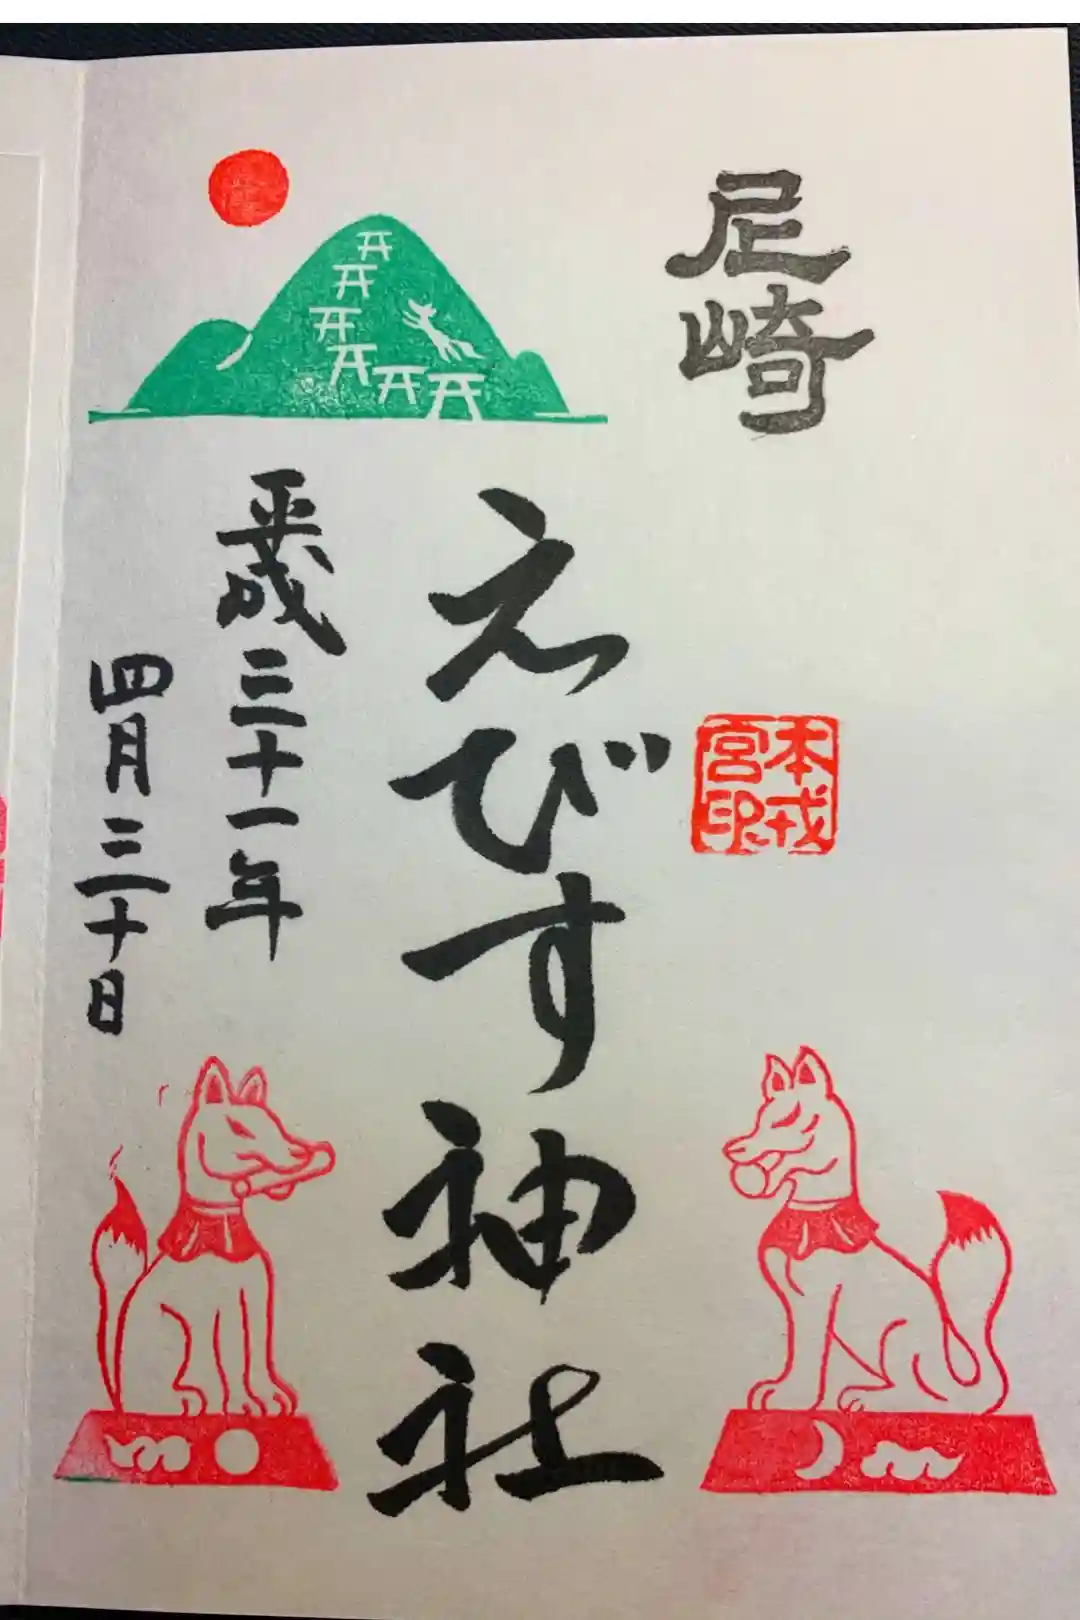 尼崎
本戎
宮印
えびす神社
平成三十一年
四月三十日